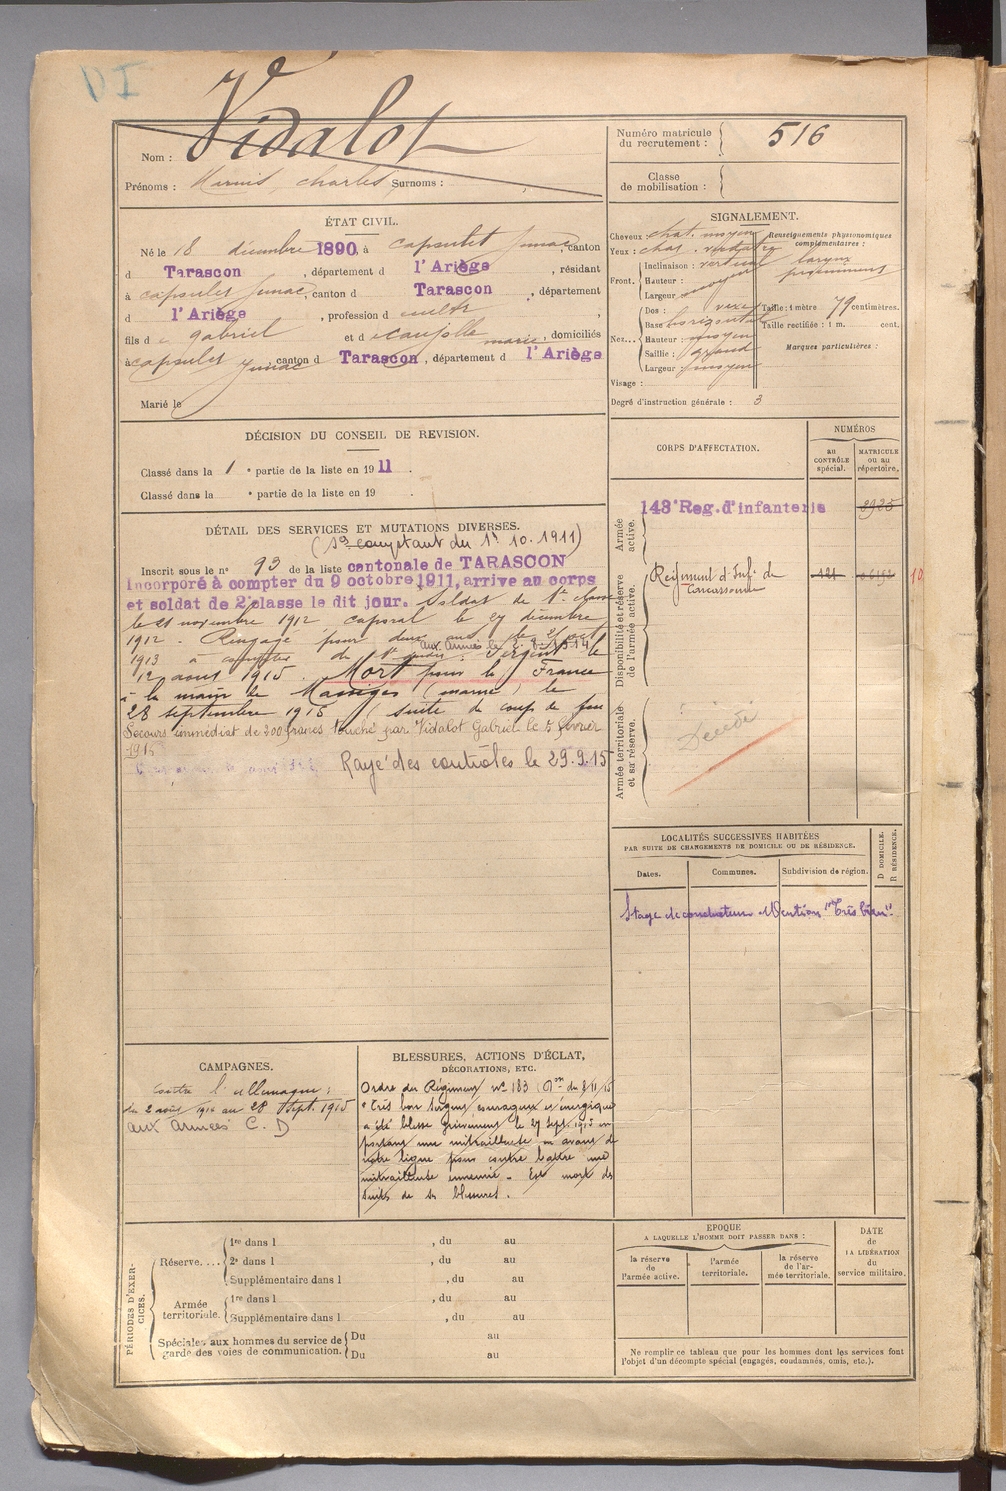 VI
Vidalot
Nom :
Prénoms : Marius, Charles Surnoms :
Numéro matricule
du recrutement : 516
Classe
de mobilisation :
ÉTAT CIVIL.
Né le 18 décembre 1890, à Capoulet Junac, canton
d Tarascon, département d l'Ariège, résidant
à Capoulet Junac, canton d Tarascon, département
d l'Ariège, profession d cultr,
fils d e gabriel et d marie, domiciliés
à Capoulet Junac, canton d Tarascon, département d l'Ariège
Marié le
SIGNALEMENT.
Cheveux chat. moyen
Yeux : chat. verdatre
Front. Inclinaison : vertical
Hauteur :
Largeur moyen
Nez... Dos :
Base horizontal
Hauteur : moyen
Saillie : grand
Largeur : moyen
Visage :
Renseignements physionomiques
complémentaires :
larynx
proéminent
Taille : 1 mètre 79 centimètres.
Taille rectifiée : 1 m. cent.
Marques particulières :
Degré d'instruction générale : 3
DÉCISION DU CONSEIL DE REVISION.
Classé dans la 1 e partie de la liste en 1911.
Classé dans la e partie de la liste en 19 .
CORPS D'AFFECTATION.
NUMÉROS
au
CONTRÔLE
spécial.
MATRICULE
ou au
répertoire.
Armée
active.
143e Reg. d'infanterie
Disponibilité et réserve
de l'armée active.
Régiment d'Inf. de
Carcassonne 121 10
Armée territoriale
et sa réserve.
Décédé
DÉTAIL DES SERVICES ET MUTATIONS DIVERSES.
(So comptant du 1r 10. 1911)
Inscrit sous le n° 93 de la liste cantonale de TARASCON
Incorporé à compter du 9 octobre 1911, arrive au corps
et soldat de 2e classe le dit jour. Soldat de 1e classe
le 21 novembre 1912, caporal le 27 décembre
1912. Rengagé pour deux ans le 2
aux Armées le 2.8.1914
1913 à compter du 1r Sergent le
12 aout 1915. Mort pour la France
à la main de Massiges (marne) le
28 septembre 1915 (suite de coup de feu
Secours immédiat de 200 francs touché par Vidalot Gabriel le 5 février
1916
Rayé des contrôles le 29.9.15
LOCALITÉS SUCCESSIVES HABITÉES
PAR SUITE DE CHANGEMENTS DE DOMICILE OU DE RÉSIDENCE.
Dates.
Communes.
Subdivision de région.
D DOMICILE.
R RÉSIDENCE.
Stage de conducteur Mention "Très bien".
CAMPAGNES.
Contre l'allemagne :
du 2 août 1914 au 28 Sept. 1915
aux armées C. D
BLESSURES, ACTIONS D'ÉCLAT,
DÉCORATIONS, ETC.
Ordre du Régiment n° 183 du 8 11 15
"Très bon Sergent courageux et énergique
a été blessé grièvement le 27 Sept. 1915 en
portant une mitrailleuse en avant de
notre ligne pour contre battre une
mitrailleuse ennemie. Est mort des
suites de ses blessures.
PÉRIODES D'EXER-
CICES.
Réserve.... 1re dans l , du au
2e dans l , du au
Supplémentaire dans l , du au
Armée
territoriale. 1re dans l , du au
Supplémentaire dans l , du au
Spéciales aux hommes du service de
garde des voies de communication. Du au
Du au
EPOQUE
A LAQUELLE L'HOMME DOIT PASSER DANS :
la réserve
de
l'armée active.
l'armée
territoriale.
la réserve
de l'ar-
mée territoriale.
DATE
de
LA LIBÉRATION
du
service militaire.
Ne remplir ce tableau que pour les hommes dont les services font
l'objet d'un décompte spécial (engagés, condamnés, omis, etc.).